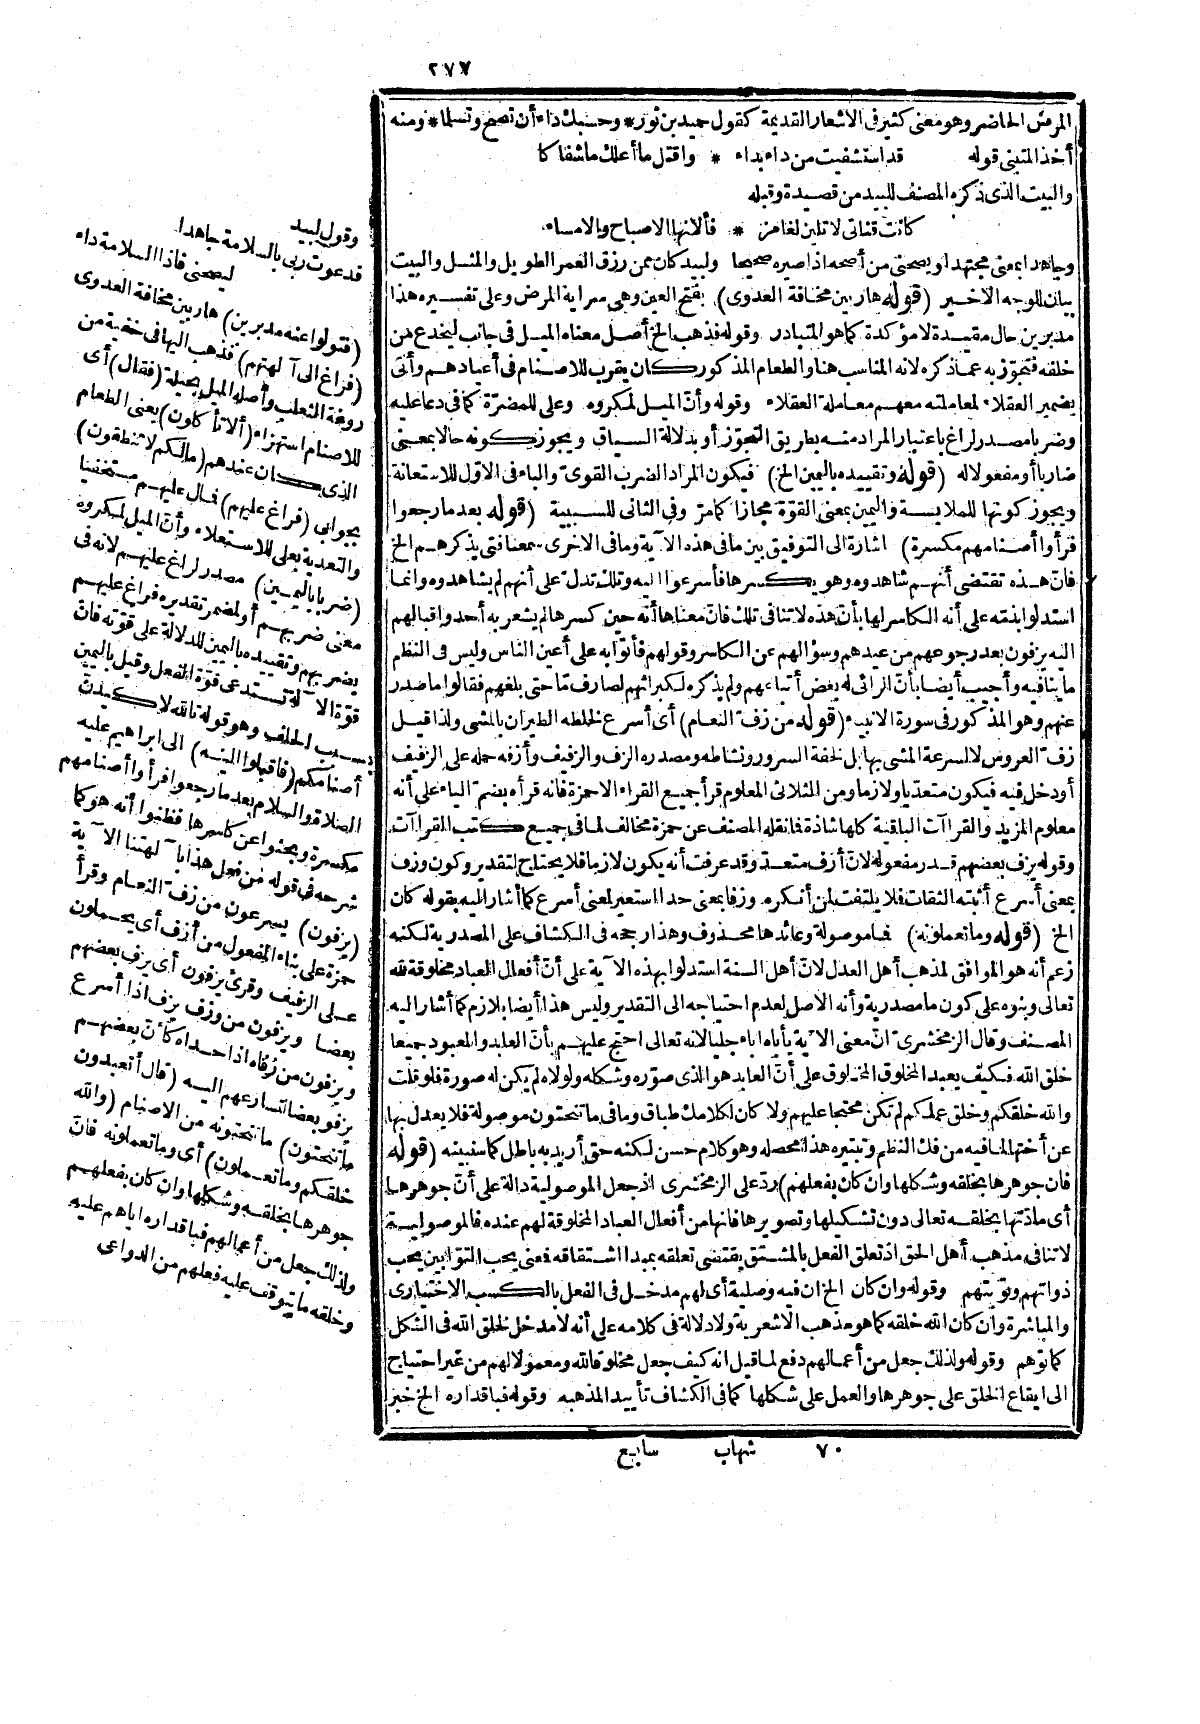 ٢٧٧
المرض الحاضر وهو معنى كثير فى الاشعار القديمة كقول حميد بن ثور * وحسبك داء أن تصح وتسلما * ومنه
أخذ المتنبى قوله قد استشفيت من داء بداء * واقتل ما أعلك ما شفاكا
والبيت الذى ذكره المصنف للبيد من قصيدة وقبله
كانت قناتى لا تلين لغامز * فألانها الاصباح والامساء
وجاهدا بمعنى مجتهدا ويصحنى من أصحه اذا صيره صحيحا ولبيد كان ممن رزق العمر الطويل والمثل والبيت
بيان للوجه الاخير (قوله هاربين مخافة العدوى) بفتح العين وهى سراية المرض وعلى تفسيره هذا
مدبرين حال مقيدة لا مؤكدة كما هو المتبادر وقوله فذهب الخ أصل معناه الميل فى جانب ليخدع من
خلفه فتجوّز به عما ذكره لانه المناسب هنا والطعام المذكور كان يقرب للاصنام فى أعيادهم وأتى
بضمير العقلاء لمعاملته معهم معاملة العقلاء وقوله وأنّ الميل لمكروه وعلى للمضرّة كما فى دعا عليه
وضربا مصدر لراغ باعتبار المراد منه بطريق التجوّز أو بدلالة السياق ويجوز كونه حالا بمعنى
ضاربا أو مفعولا له (قوله وتقييده باليمين الخ) فيكون المراد الضرب القوىّ والباء فى الاوّل للاستعانة
ويجوز كونها للملابسة واليمين بمعنى القوّة مجازا كما مرّ وفى الثانى للسببية (قوله بعد ما رجعوا
فرأوا أصنامهم مكسرة) اشارة الى التوفيق بين ما فى هذه الآية وما فى الاخرى سمعنا فتى يذكرهم الخ
فانّ هذه تقتضى أنهم شاهدوه وهو يكسرها فأسرعوا اليه وتلك تدلّ على أنهم لم يشاهدوه وانما
استدلوا بذمّه على أنه الكاسر لها بأنّ هذه لا تنافى تلك فانّ معناها أنه حين كسرها لم يشعر به أحد واقبالهم
اليه يزفون بعد رجوعهم من عيدهم وسؤالهم عن الكاسر وقولهم فأتوا به على أعين الناس وليس فى النظم
ما ينافيه وأجيب أيضا بأنّ الرائى له بعض أتباعهم ولم يذكره لكبرائهم لصارف مّا حتى بلغهم فقالوا ما صدر
عنهم وهو المذكور فى سورة الانبياء (قوله من زف النعام) أى أسرع لخلطه الطيران بالمشى ولذا قيل
زف العروس لا لسرعة المشى بها بل لخفة السرور ونشاطه ومصدره الزف والزفيف وأزفه حمله على الزفيف
أو دخل فيه فيكون متعدّيا ولازما ومن الثلاثى المعلوم قرأ جميع القراء الا حمزة فانه قرأه بضم الياء على أنه
معلوم المزيد والقراآت الباقية كلها شاذة فما نقله المصنف عن حمزة مخالف لما فى جميع كتب القراآت
وقوله يزف بعضهم قدر مفعوله لانّ أزف متعدّ وقد عرفت أنه يكون لازما فلا يحتاج لتقدير وكون وزف
بمعنى أسرع أثبته الثقات فلا يلتفت لمن أنكره وزفا بمعنى حدا استعير لمعنى أسرع كما أشار اليه بقوله كان
الخ (قوله وما تعملونه) فما موصولة وعائدها محذوف وهذا رجحه فى الكشاف على المصدرية لكنه
زعم أنه هو الموافق لمذهب أهل العدل لانّ أهل السنة استدلوا بهذه الآية على أنّ أفعال العباد مخلوقة لله
تعالى وبنوه على كون ما مصدرية وأنه الاصل لعدم احتياجه الى التقدير وليس هذا أيضا بلازم كما أشار اليه
المصنف وقال الزمخشرىّ انّ معنى الآية يأباه اباء جليا لانه تعالى احتج عليهم بأنّ العابد والمعبود جميعا
خلق الله فكيف يعبد المخلوق المخلوق على أنّ العابد هو الذى صوّره وشكله ولولاه لم يكن له صورة فلو قلت
والله خلقكم وخلق عملكم لم تكن محتجا عليهم ولا كان لكلامك طباق وما فى ما تنحتون موصولة فلا يعدل بها
عن أختها لما فيه من فك النظم وتبتيره هذا محصله وهو كلام حسن لكنه حق أريد به باطل كما سنبينه (قوله
فان جوهرها بخلقه وشكلها وان كان بفعلهم) ردّ على الزمخشرى اذ جعل الموصولية دالة على أنّ جوهرها
أى مادّتها بخلقه تعالى دون تشكيلها وتصويرها فانها من أفعال العباد المخلوقة لهم عنده فالموصولية
لا تنافى مذهب أهل الحق اذ تعلق الفعل بالمشتق يقتضى تعلقه بمبدا اشتقاقه فمعنى يحب التوّابين يحب
ذواتهم وتوبتهم وقوله وان كان الخ ان فيه وصلية أى لهم مدخل فى الفعل بالكسب الاختيارى
والمباشرة وان كان الله خلقه كما هو مذهب الاشعرية ولا دلالة فى كلامه على أنه لا مدخل لخلق الله فى الشكل
كما توهم وقوله ولذلك جعل من أعمالهم دفع لما قيل انه كيف جعل مخلوقا لله ومعمولا لهم من غير احتياج
الى ايقاع الخلق على جوهرها والعمل على شكلها كما فى الكشاف تأييدا لمذهبه وقوله فباقداره الخ خبر
٧٠ شهاب سابع
وقول لبيد
فدعوت ربى بالسلامة جاهدا
ليصحنى فاذا السلامة داء
(فتولوا عنه مدبرين) هاربين مخافة العدوى
(فراغ الى آلهتهم) فذهب اليها فى خفية من
روغة الثعلب وأصله الميل بحيلة (فقال) أى
للاصنام استهزاء (ألا تأكلون) يعنى الطعام
الذى كان عندهم (ما لكم لا تنطقون)
بجوابى (فراغ عليهم) فمال عليهم مستخفيا
والتعدية بعلى للاستعلاء وأنّ الميل لمكروه
(ضربا باليمين) مصدر لراغ عليهم لانه فى
معنى ضربهم أو لمضمر تقديره فراغ عليهم
يضربهم وتقييده باليمين للدلالة على قوّته فانّ
قوّة الآلة تستدعى قوّة الفعل وقيل باليمين
بسبب الحلف وهو قوله تالله لاكيدنّ
أصنامكم (فاقبلوا اليه) الى ابراهيم عليه
الصلاة والسلام بعد ما رجعوا فرأوا أصنامهم
مكسرة وبحثوا عن كاسرها فظنوا أنه هو كما
شرحه فى قوله من فعل هذا بآلهتنا الآية
(يزفون) يسرعون من زف النعام وقرأ
حمزة على بناء المفعول من أزف أى يحملون
على الزفيف وقرئ يزفون أى يزف بعضهم
بعضا ويزفون من وزف يزف اذا أسرع
ويزفون من زفاه اذا حداه كأنّ بعضهم
يزفو بعضا لتسارعهم اليه (قال أتعبدون
ما تنحتون) ما تنحتونه من الاصنام (والله
خلقكم وما تعملون) أى وما تعملونه فانّ
جوهرها بخلقه وشكلها وان كان بفعلهم
ولذلك جعل من أعمالهم فباقداره اياهم عليه
وخلقه ما يتوقف عليه فعلهم من الدواعى